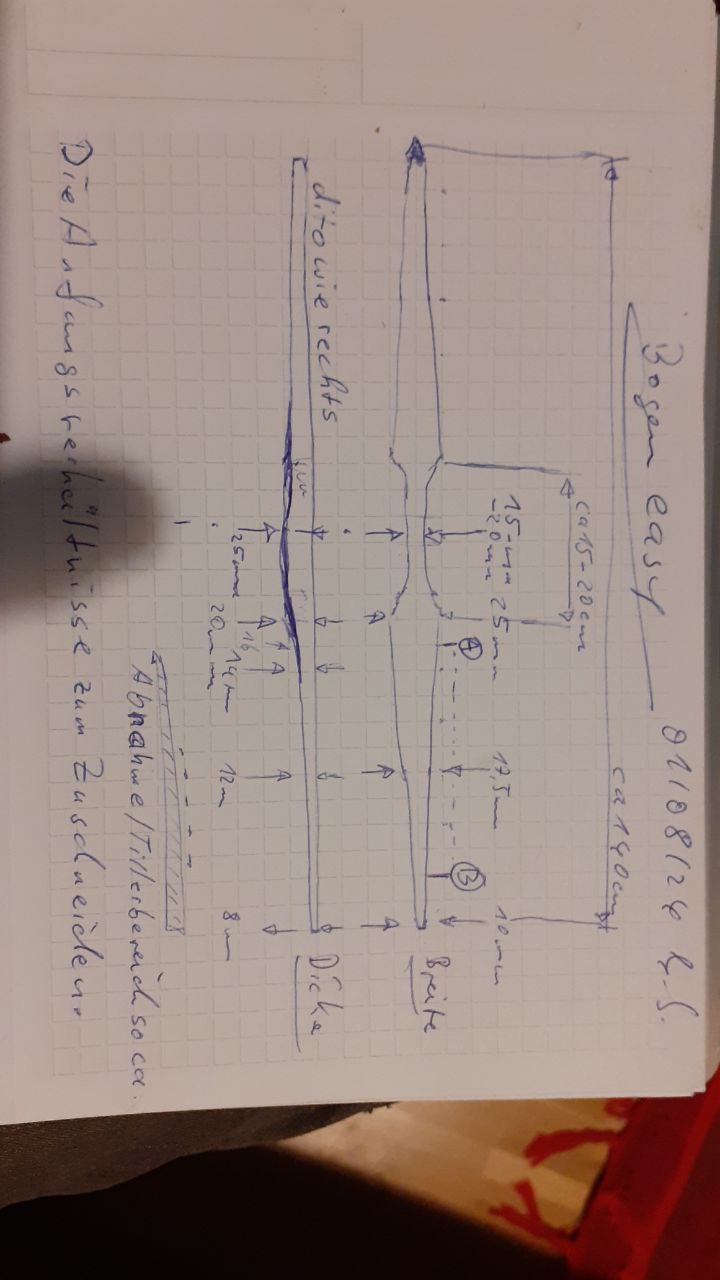 Bogen easy 01/08/24 G.S.
ca 140cm
ca 15-20cm
15-mm 25mm 17,5mm 10mm
-20mm
A B
Breite
dito wie rechts
Dicke
25mm 16 14mm 12m 8m
20mm
Abnahme/Tillerbereich so ca.
Die Anfangsverhältnisse zum Zuschneiden.